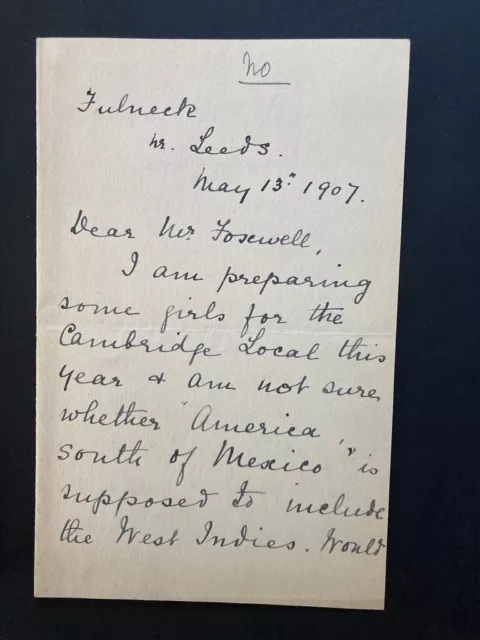 No
Fulneck
nr. Leeds.
May 13th 1907.
Dear Mr Foxwell,
I am preparing
some girls for the
Cambridge Local this
year & am not sure
whether "America,
south of Mexico" is
supposed to include
the West Indies. Would